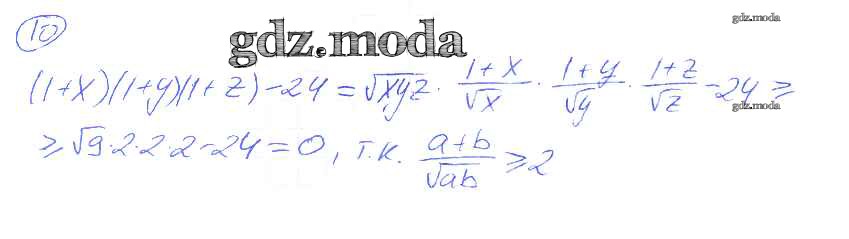 10
gdz.moda
gdz.moda
(1+x)(1+y)(1+z)-24 = √xyz · (1+x)/√x · (1+y)/√y · (1+z)/√z - 24 ≥
gdz.moda
≥ √9·2·2·2-24=0, т.к. (a+b)/√ab ≥ 2